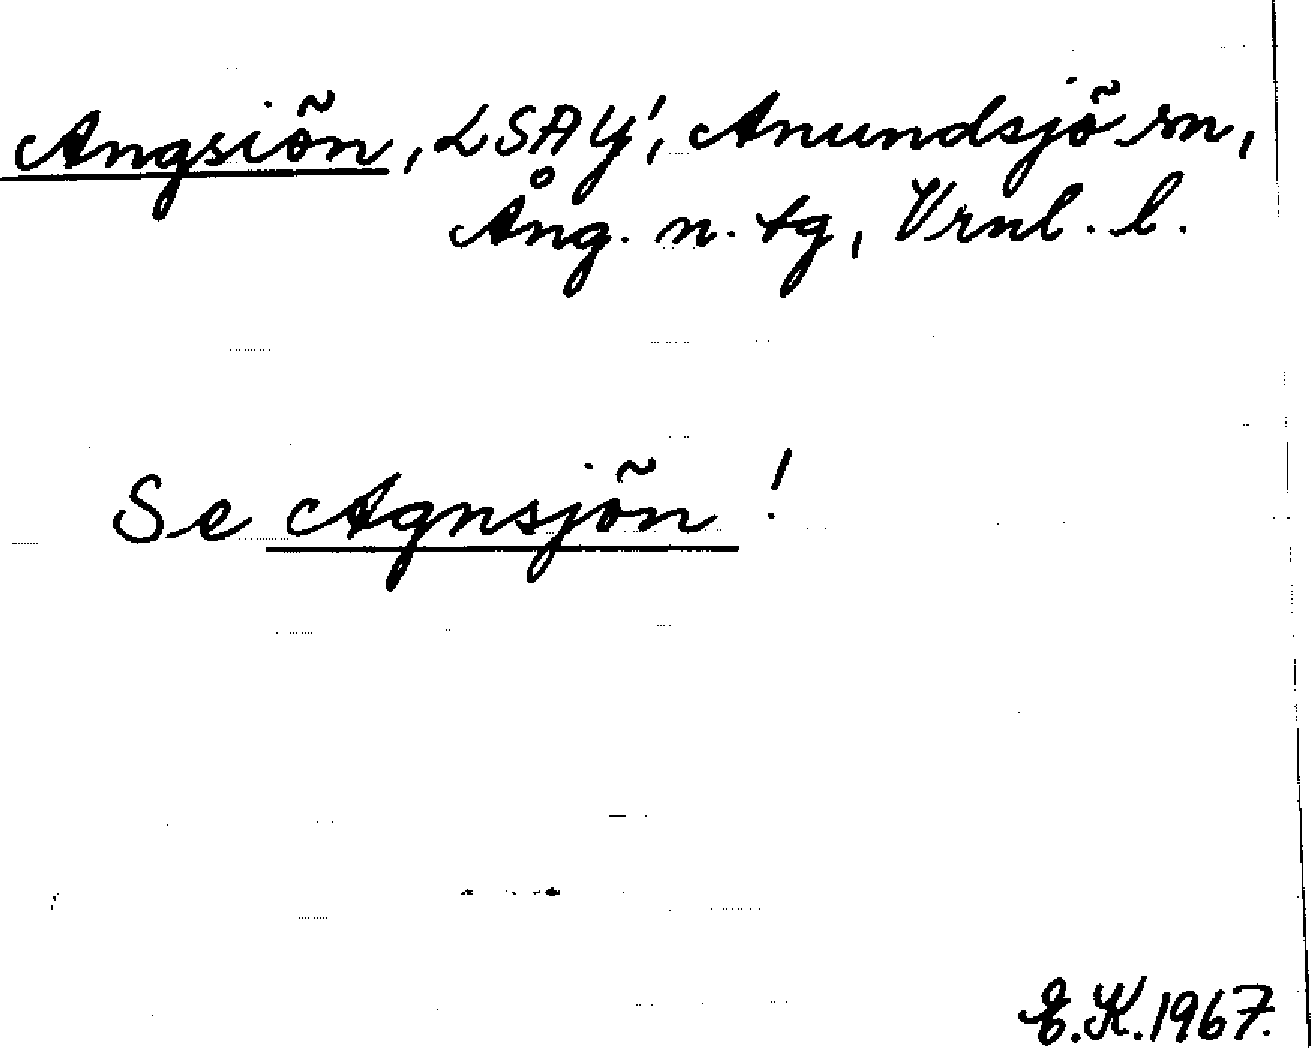 Angsiön, LSAY', Anundsjö sn,
Ång. n. tg, Vrnl. l.
Se Agnsjön!
E.K. 1967.